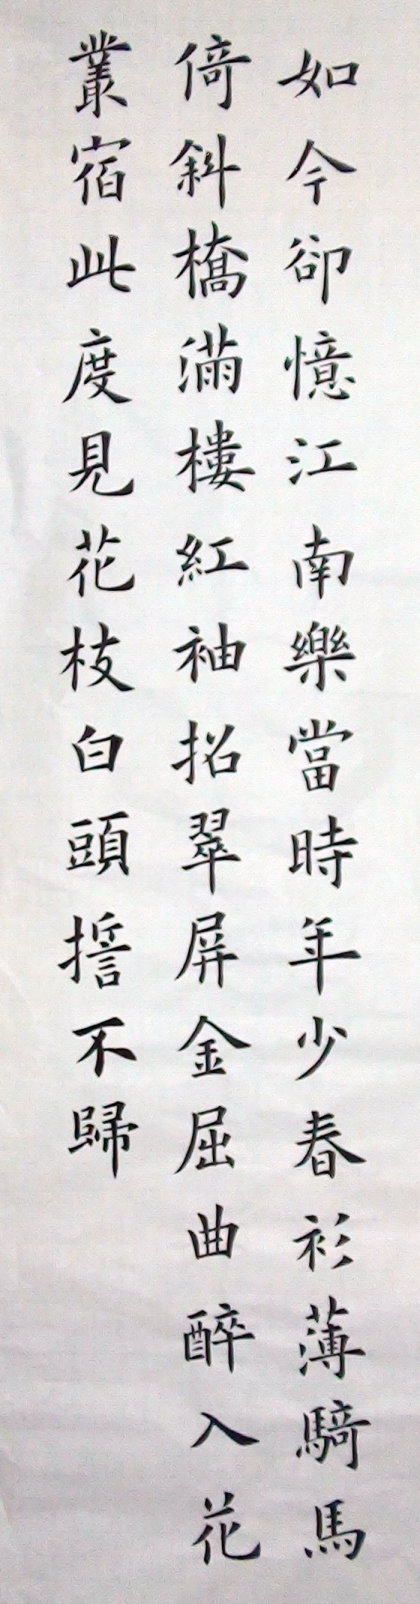 如今卻憶江南樂當時年少春衫薄騎馬
倚斜橋滿樓紅袖招翠屏金屈曲醉入花
叢宿此度見花枝白頭誓不歸